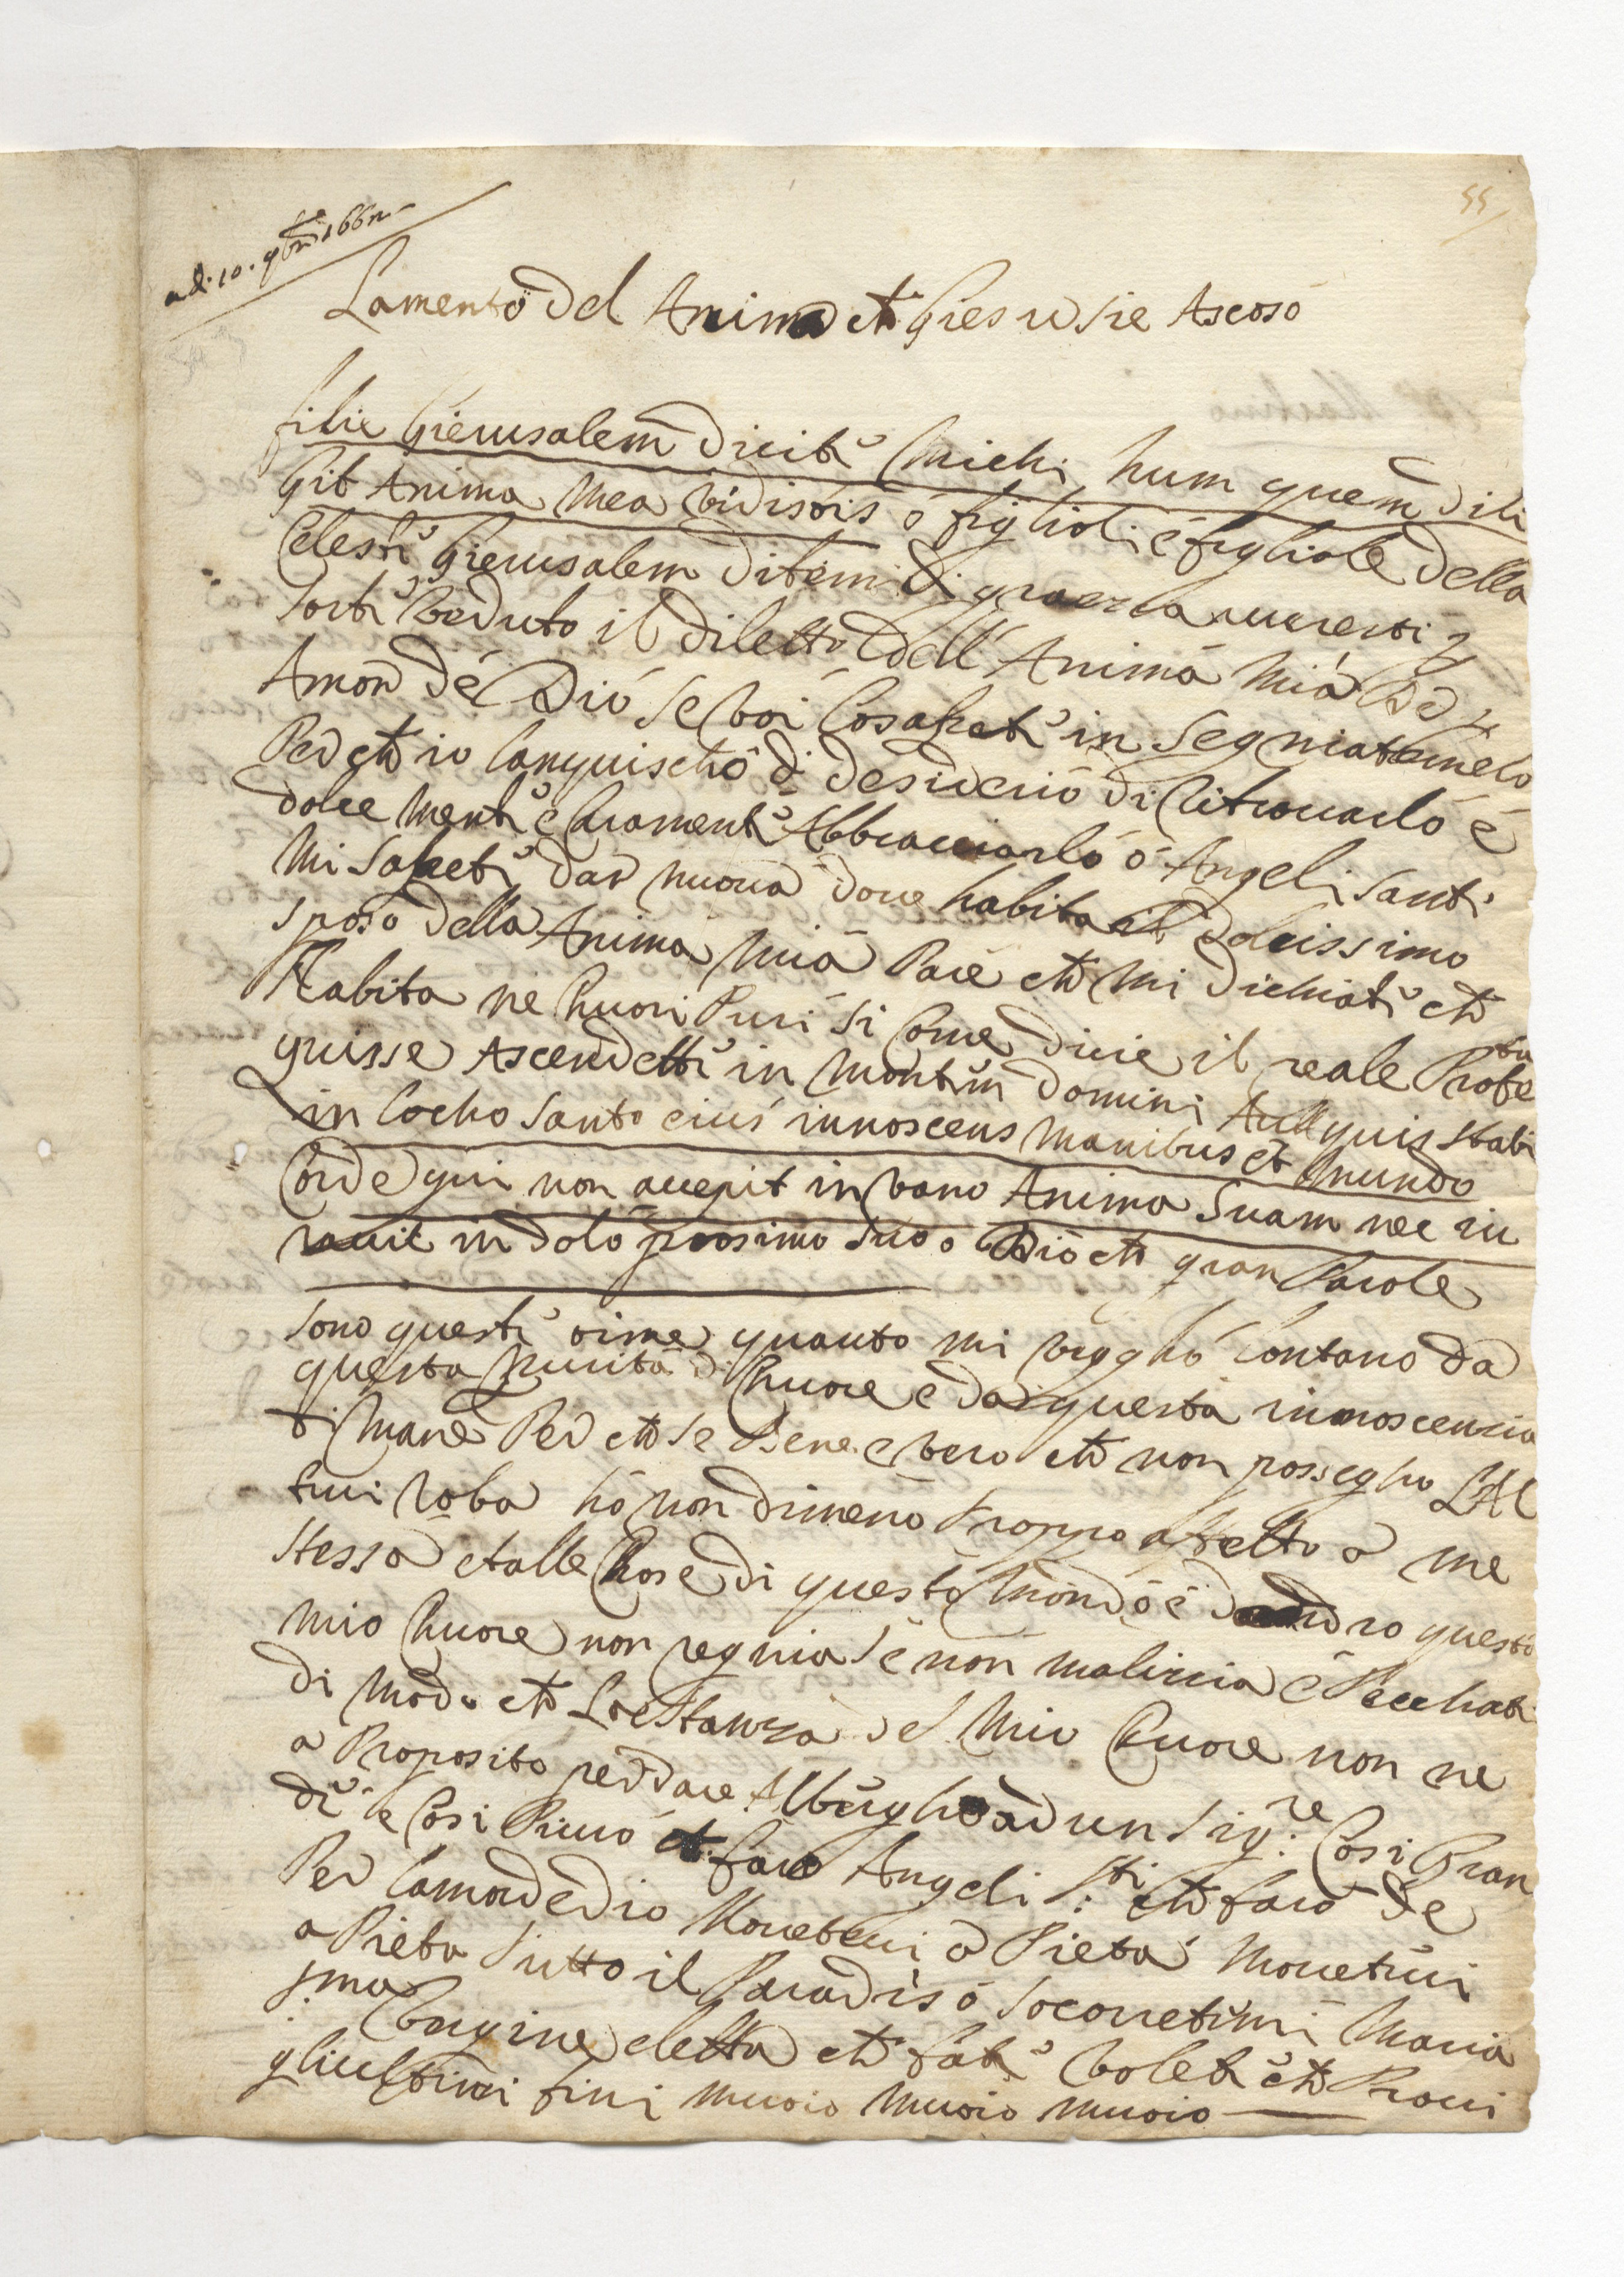 55
ad. 10. 9bre 166
Lamento del Anima che Giesu sie Ascoso
filie Gierusalem dicite Michi num quem dili
git Anima Mea vidistis ó figlioli é figliole della
Celeste Gierusalem ditemi di graezia auereste p
sorte Veduto il diletto dell Anima Mia Ed p
Amor dé Dio Se Voi Losapete in Segniatemelo
Per che io Languischo di desiderio di Ritrouarlo é
dolce Mente é Charamente Abbracciarlo ó Angeli Santi
Mi Sapete dar nuoua doue habita il dolcissimo
sposo della Anima Mia Pare che Mi dichiate che
Habita ne Chuori Puri Si Come dicie il reale Profe
ta
quisse Ascendette in Montem domini Autt quis stabi
in Locho Santo eius innoscens Manibus et Mundo
Corde qui non accepit in Vano Anima Suam nec iu
rauit in dolo prosimo Suo o Dio che gran Parole
sono queste oime quanto mi Veggho Lontano da
questa Purita di Chuore e da questa innoscenzia
di Mane Per che Se Bene e Vero che non possegho LAl
trui roba hó non dimeno troppo affetto a me
stessa et alle Chose di questo Mondo é dendro questo
mio Chuore non regnia Se non malizzia é Pecchati
di modo che La Stanza del Mio Chuore non ne
a Proposito per dare Albergho ad un Sig.re Cosi Gran
de e Cosi Puro che faro Angeli S.ti che faro de
Per Lamor de Dio Moueteui a Pieta Moueteui
a Pieta Tutto il Paradiso Socorretimi Maria
s.ma Vergine eletta che fate Volete che Proui
gliultimi fini Muoio Muoio Muoio